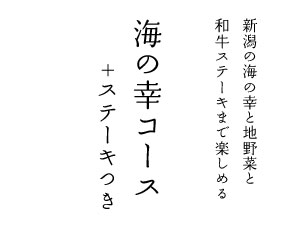 新潟の海の幸と地野菜と
和牛ステーキまで楽しめる
海の幸コース
+ステーキつき